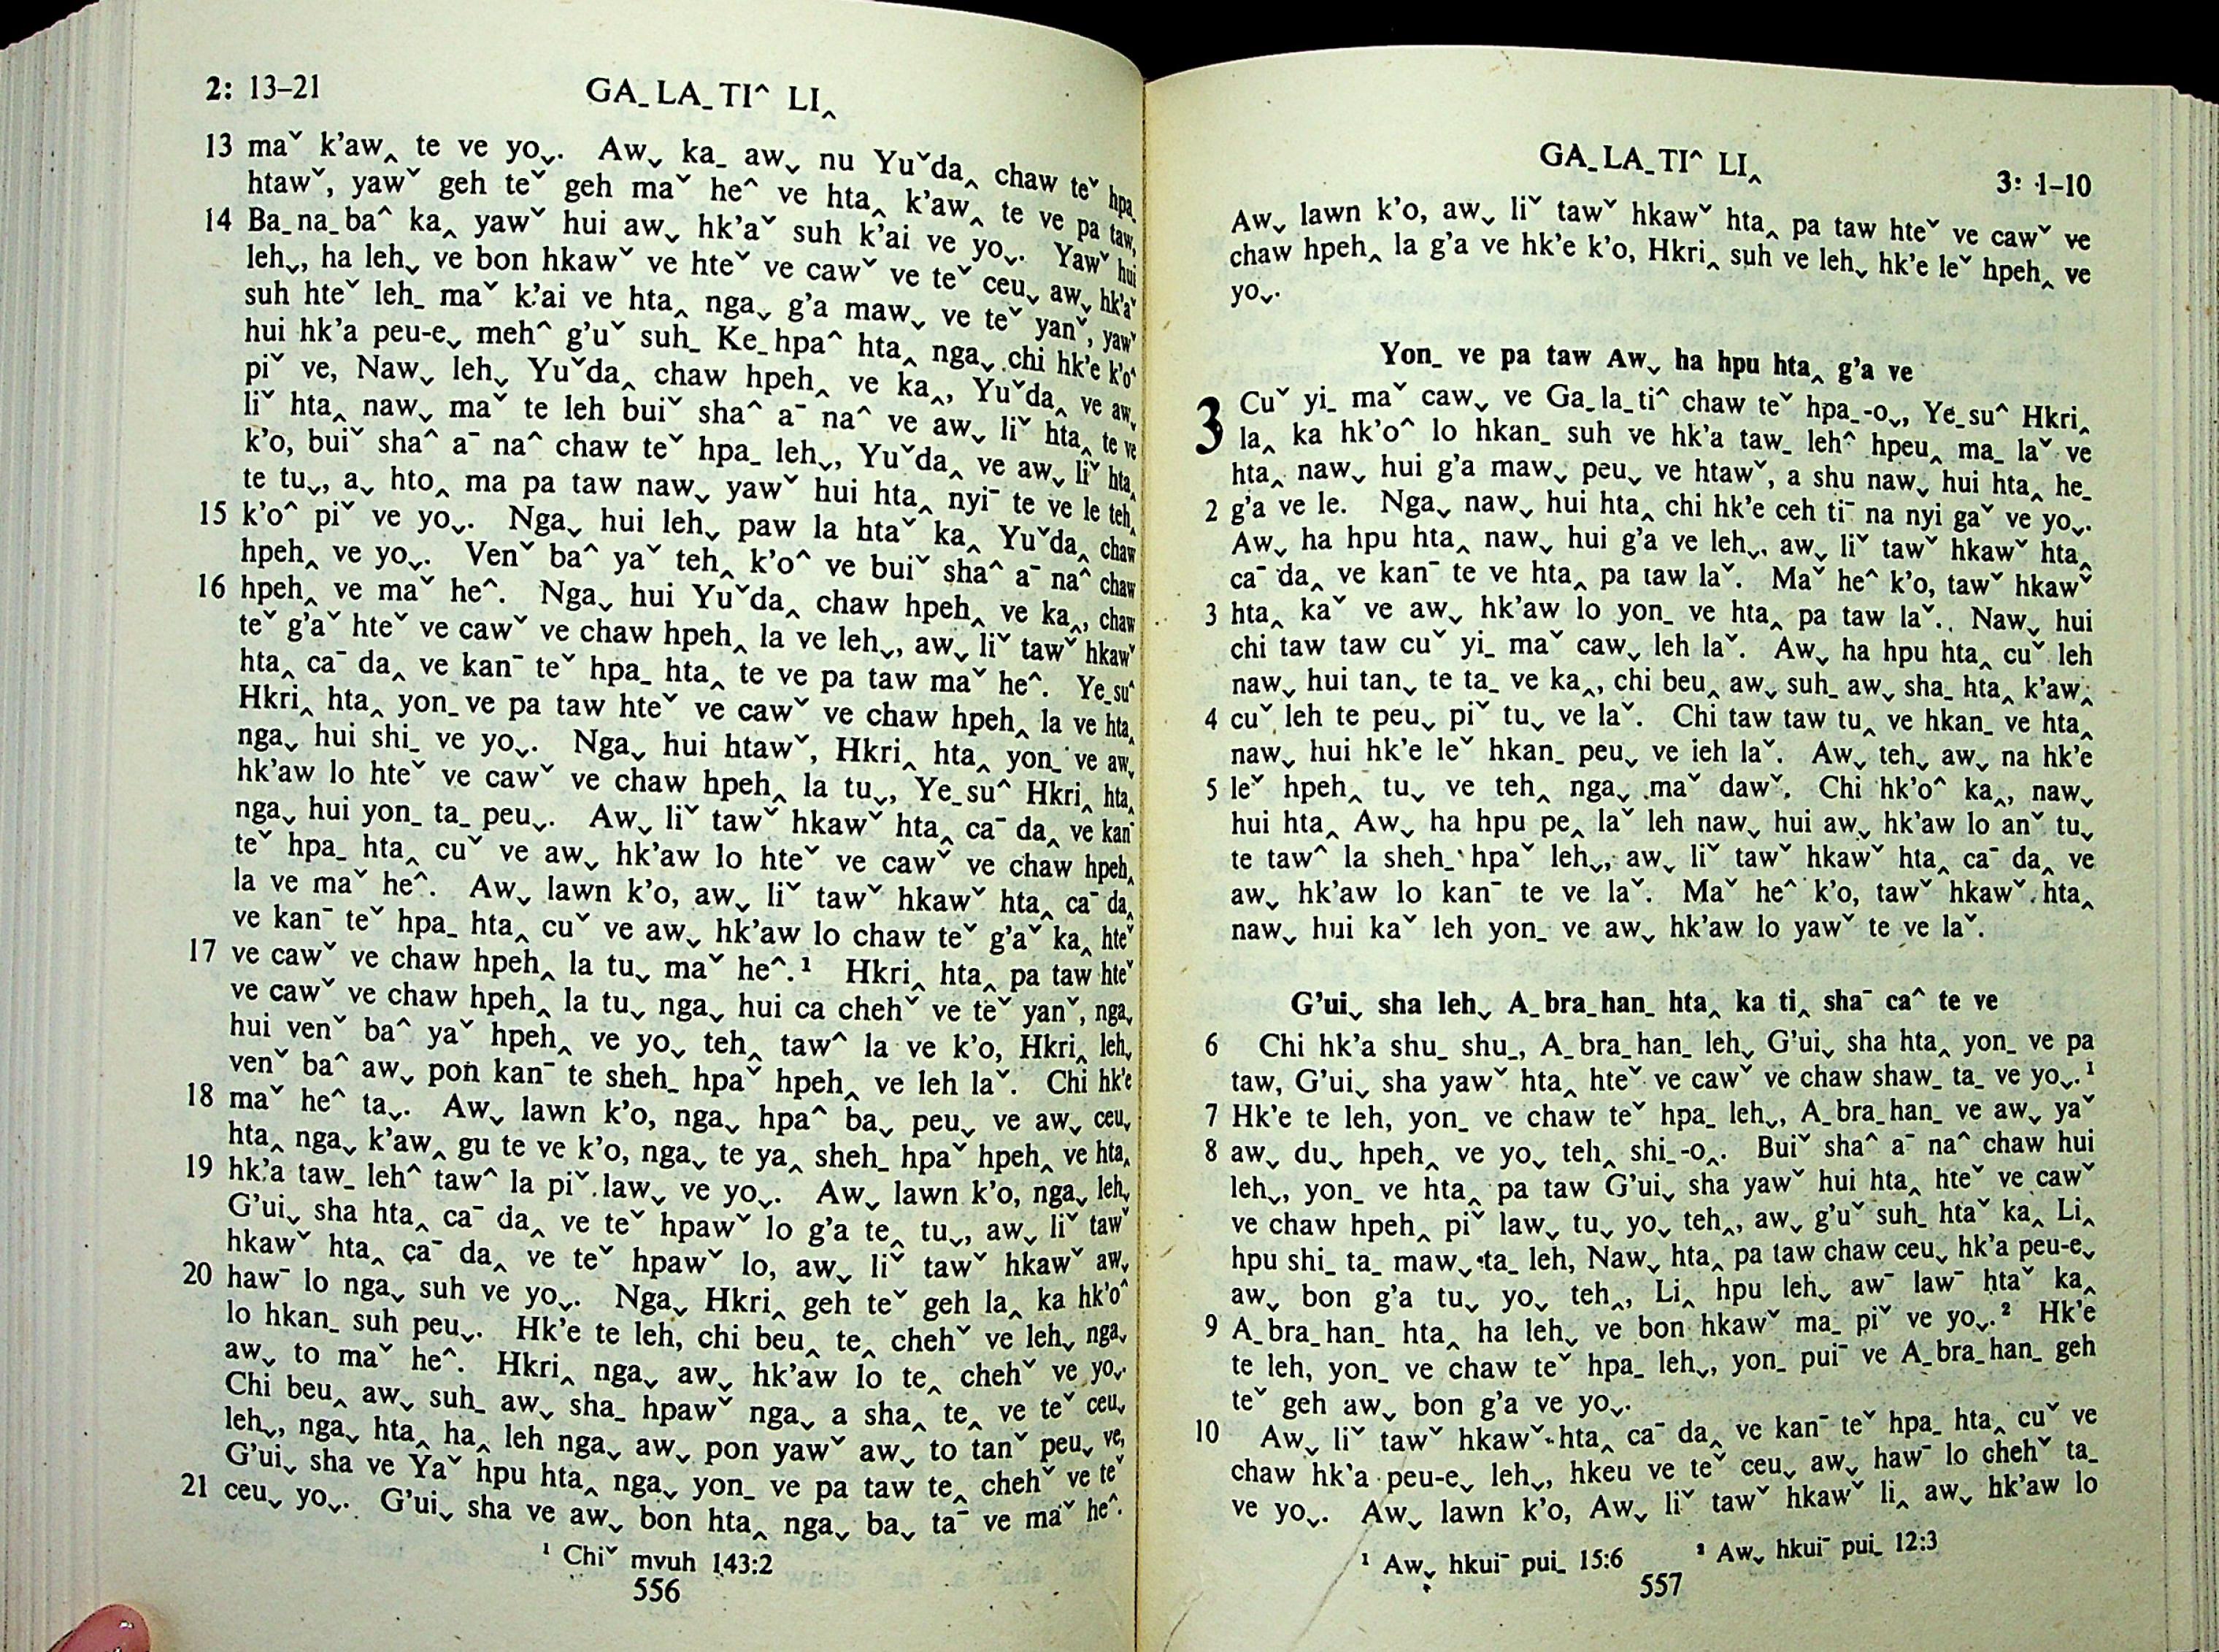 2: 13–21
GA_ LA_ TI^ LI‸
13 maˇ k'aw‸ te ve yoˬ. Awˬ ka_ awˬ nu Yuˇda‸ chaw teˇ hpa_
htawˇ, yawˇ geh teˇ geh maˇ he^ ve hta‸ k'aw‸ te ve pa taw,
14 Ba_na_ba^ ka‸ yawˇ hui awˬ hk'aˇ suh k'ai ve yoˬ. Yawˇ hui
lehˬ, ha lehˬ ve bon hkawˇ ve hteˇ ve cawˇ ve teˇ ceuˬ awˬ hk'aˇ
suh hteˇ leh_ maˇ k'ai ve hta‸ ngaˬ g'a mawˬ ve teˇ yanˇ, yawˇ
hui hk'a peu-eˬ meh^ g'uˇ suh_ Ke_hpa^ hta‸ ngaˬ chi hk'e k'o^
piˇ ve, Nawˬ lehˬ Yuˇda‸ chaw hpeh‸ ve ka‸, Yuˇda‸ ve awˬ
liˇ hta‸ nawˬ maˇ te leh buiˇ sha^ aˉ na^ ve awˬ liˇ hta‸ te ve
k'o, buiˇ sha^ aˉ na^ chaw teˇ hpa_ lehˬ, Yuˇda‸ ve awˬ liˇ hta‸
te tuˬ, aˬ hto‸ ma pa taw nawˬ yawˇ hui hta‸ nyiˉ te ve le teh‸
15 k'o^ piˇ ve yoˬ. Ngaˬ hui lehˬ paw la htaˇ ka‸ Yuˇda‸ chaw
hpeh‸ ve yoˬ. Venˇ ba^ yaˇ teh‸ k'o^ ve buiˇ sha^ aˉ na^ chaw
16 hpeh‸ ve maˇ he^. Ngaˬ hui Yuˇda‸ chaw hpeh‸ ve ka‸, chaw
teˇ g'aˇ hteˇ ve cawˇ ve chaw hpeh‸ la ve lehˬ, awˬ liˇ tawˇ hkawˇ
hta‸ caˉ da‸ ve kanˉ teˇ hpa_ hta‸ te ve pa taw maˇ he^. Ye_su^
Hkri‸ hta‸ yon_ ve pa taw hteˇ ve cawˇ ve chaw hpeh‸ la ve hta‸
ngaˬ hui shi_ ve yoˬ. Ngaˬ hui htawˇ, Hkri‸ hta‸ yon_ ve awˬ
hk'aw lo hteˇ ve cawˇ ve chaw hpeh‸ la tuˬ, Ye_su^ Hkri‸ hta‸
ngaˬ hui yon_ ta_ peuˬ. Awˬ liˇ tawˇ hkawˇ hta‸ caˉ da‸ ve kanˉ
teˇ hpa_ hta‸ cuˇ ve awˬ hk'aw lo hteˇ ve cawˇ ve chaw hpeh‸
la ve maˇ he^. Awˬ lawn k'o, awˬ liˇ tawˇ hkawˇ hta‸ caˉ da‸
ve kanˉ teˇ hpa_ hta‸ cuˇ ve awˬ hk'aw lo chaw teˇ g'aˇ ka‸ hteˇ
17 ve cawˇ ve chaw hpeh‸ la tuˬ maˇ he^.¹ Hkri‸ hta‸ pa taw hteˇ
ve cawˇ ve chaw hpeh‸ la tuˬ ngaˬ hui ca chehˇ ve teˇ yanˇ, ngaˬ
hui venˇ ba^ yaˇ hpeh‸ ve yoˬ teh‸ taw^ la ve k'o, Hkri‸ lehˬ
venˇ ba^ awˬ pon kanˉ te sheh_ hpaˇ hpeh‸ ve leh laˇ. Chi hk'e
18 maˇ he^ taˬ. Awˬ lawn k'o, ngaˬ hpa^ baˬ peuˬ ve awˬ ceuˬ
hta‸ ngaˬ k'aw‸ gu te ve k'o, ngaˬ te ya‸ sheh_ hpaˇ hpeh‸ ve hta‸
19 hk'a taw_ leh^ taw^ la piˇ lawˬ ve yoˬ. Awˬ lawn k'o, ngaˬ lehˬ
G'uiˬ sha hta‸ caˉ da‸ ve teˇ hpawˇ lo g'a te‸ tuˬ, awˬ liˇ tawˇ
hkawˇ hta‸ caˉ da‸ ve teˇ hpawˇ lo, awˬ liˇ tawˇ hkawˇ awˬ
20 hawˉ lo ngaˬ suh ve yoˬ. Ngaˬ Hkri‸ geh teˇ geh la‸ ka hk'o^
lo hkan_ suh peuˬ. Hk'e te leh, chi beu‸ te‸ chehˇ ve lehˬ ngaˬ
awˬ to maˇ he^. Hkri‸ ngaˬ awˬ hk'aw lo te‸ chehˇ ve yoˬ.
Chi beu‸ awˬ suh_ awˬ sha_ hpawˇ ngaˬ a sha‸ te‸ ve teˇ ceuˬ
lehˬ, ngaˬ hta‸ ha‸ leh ngaˬ awˬ pon yawˇ awˬ to tanˇ peuˬ ve,
G'uiˬ sha ve Yaˇ hpu hta‸ ngaˬ yon_ ve pa taw te‸ chehˇ ve teˇ
21 ceuˬ yoˬ. G'uiˬ sha ve awˬ bon hta‸ ngaˬ baˬ taˉ ve maˇ he^.
¹ Chiˇ mvuh 143:2
556
GA_ LA_ TI^ LI‸
3: 1–10
Awˬ lawn k'o, awˬ liˇ tawˇ hkawˇ hta‸ pa taw hteˇ ve cawˇ ve
chaw hpeh‸ la g'a ve hk'e k'o, Hkri‸ suh ve lehˬ hk'e leˇ hpeh‸ ve
yoˬ.
Yon_ ve pa taw Awˬ ha hpu hta‸ g'a ve
3 Cuˇ yi_ maˇ cawˬ ve Ga_la_ti^ chaw teˇ hpa_-oˬ, Ye_su^ Hkri‸
la‸ ka hk'o^ lo hkan_ suh ve hk'a taw_ leh^ hpeu‸ ma_ laˇ ve
hta‸ nawˬ hui g'a mawˬ peuˬ ve htawˇ, a shu nawˬ hui hta‸ he_
2 g'a ve le. Ngaˬ nawˬ hui hta‸ chi hk'e ceh tiˉ na nyi gaˇ ve yoˬ.
Awˬ ha hpu hta‸ nawˬ hui g'a ve lehˬ, awˬ liˇ tawˇ hkawˇ hta‸
caˉ da‸ ve kanˉ te ve hta‸ pa taw laˇ. Maˇ he^ k'o, tawˇ hkawˇ
3 hta‸ kaˇ ve awˬ hk'aw lo yon_ ve hta‸ pa taw laˇ. Nawˬ hui
chi taw taw cuˇ yi_ maˇ cawˬ leh laˇ. Awˬ ha hpu hta‸ cuˇ leh
nawˬ hui tanˬ te ta_ ve ka‸, chi beu‸ awˬ suh_ awˬ sha_ hta‸ k'aw‸
4 cuˇ leh te peuˬ piˇ tuˬ ve laˇ. Chi taw taw tuˬ ve hkan_ ve hta‸
nawˬ hui hk'e leˇ hkan_ peuˬ ve leh laˇ. Awˬ tehˬ awˬ na hk'e
5 leˇ hpeh‸ tuˬ ve teh‸ ngaˬ maˇ dawˇ. Chi hk'o^ ka‸, nawˬ
hui hta‸ Awˬ ha hpu pe‸ laˇ leh nawˬ hui awˬ hk'aw lo anˇ tuˬ
te taw^ la sheh_ hpaˇ lehˬ, awˬ liˇ tawˇ hkawˇ hta‸ caˉ da‸ ve
awˬ hk'aw lo kanˉ te ve laˇ. Maˇ he^ k'o, tawˇ hkawˇ hta‸
nawˬ hui kaˇ leh yon_ ve awˬ hk'aw lo yawˇ te ve laˇ.
G'uiˬ sha lehˬ A_bra_han_ hta‸ ka ti‸ shaˉ ca^ te ve
6 Chi hk'a shu_ shu_, A_bra_han_ lehˬ G'uiˬ sha hta‸ yon_ ve pa
taw, G'uiˬ sha yawˇ hta‸ hteˇ ve cawˇ ve chaw shaw_ ta_ ve yoˬ.¹
7 Hk'e te leh, yon_ ve chaw teˇ hpa_ lehˬ, A_bra_han_ ve awˬ yaˇ
8 awˬ duˬ hpeh‸ ve yoˬ teh‸ shi_-o‸. Buiˇ sha^ aˉ na^ chaw hui
lehˬ, yon_ ve hta‸ pa taw G'uiˬ sha yawˇ hui hta‸ hteˇ ve cawˇ
ve chaw hpeh‸ piˇ lawˬ tuˬ yoˬ teh‸, awˬ g'uˇ suh_ htaˇ ka‸ Li‸
hpu shi_ ta_ mawˬ ta_ leh, Nawˬ hta‸ pa taw chaw ceuˬ hk'a peu-eˬ
awˬ bon g'a tuˬ yoˬ teh‸, Li‸ hpu lehˬ awˉ lawˉ htaˇ ka‸
9 A_bra_han_ hta‸ ha lehˬ ve bon hkawˇ ma_ piˇ ve yoˬ.² Hk'e
te leh, yon_ ve chaw teˇ hpa_ lehˬ, yon_ puiˉ ve A_bra_han_ geh
teˇ geh awˬ bon g'a ve yoˬ.
10 Awˬ liˇ tawˇ hkawˇ hta‸ caˉ da‸ ve kanˉ teˇ hpa_ hta‸ cuˇ ve
chaw hk'a peu-eˬ lehˬ, hkeu ve teˇ ceuˬ awˬ hawˉ lo chehˇ ta_
ve yoˬ. Awˬ lawn k'o, Awˬ liˇ tawˇ hkawˇ li‸ awˬ hk'aw lo
¹ Awˬ hkuiˉ pui_ 15:6 ² Awˬ hkuiˉ pui_ 12:3
557